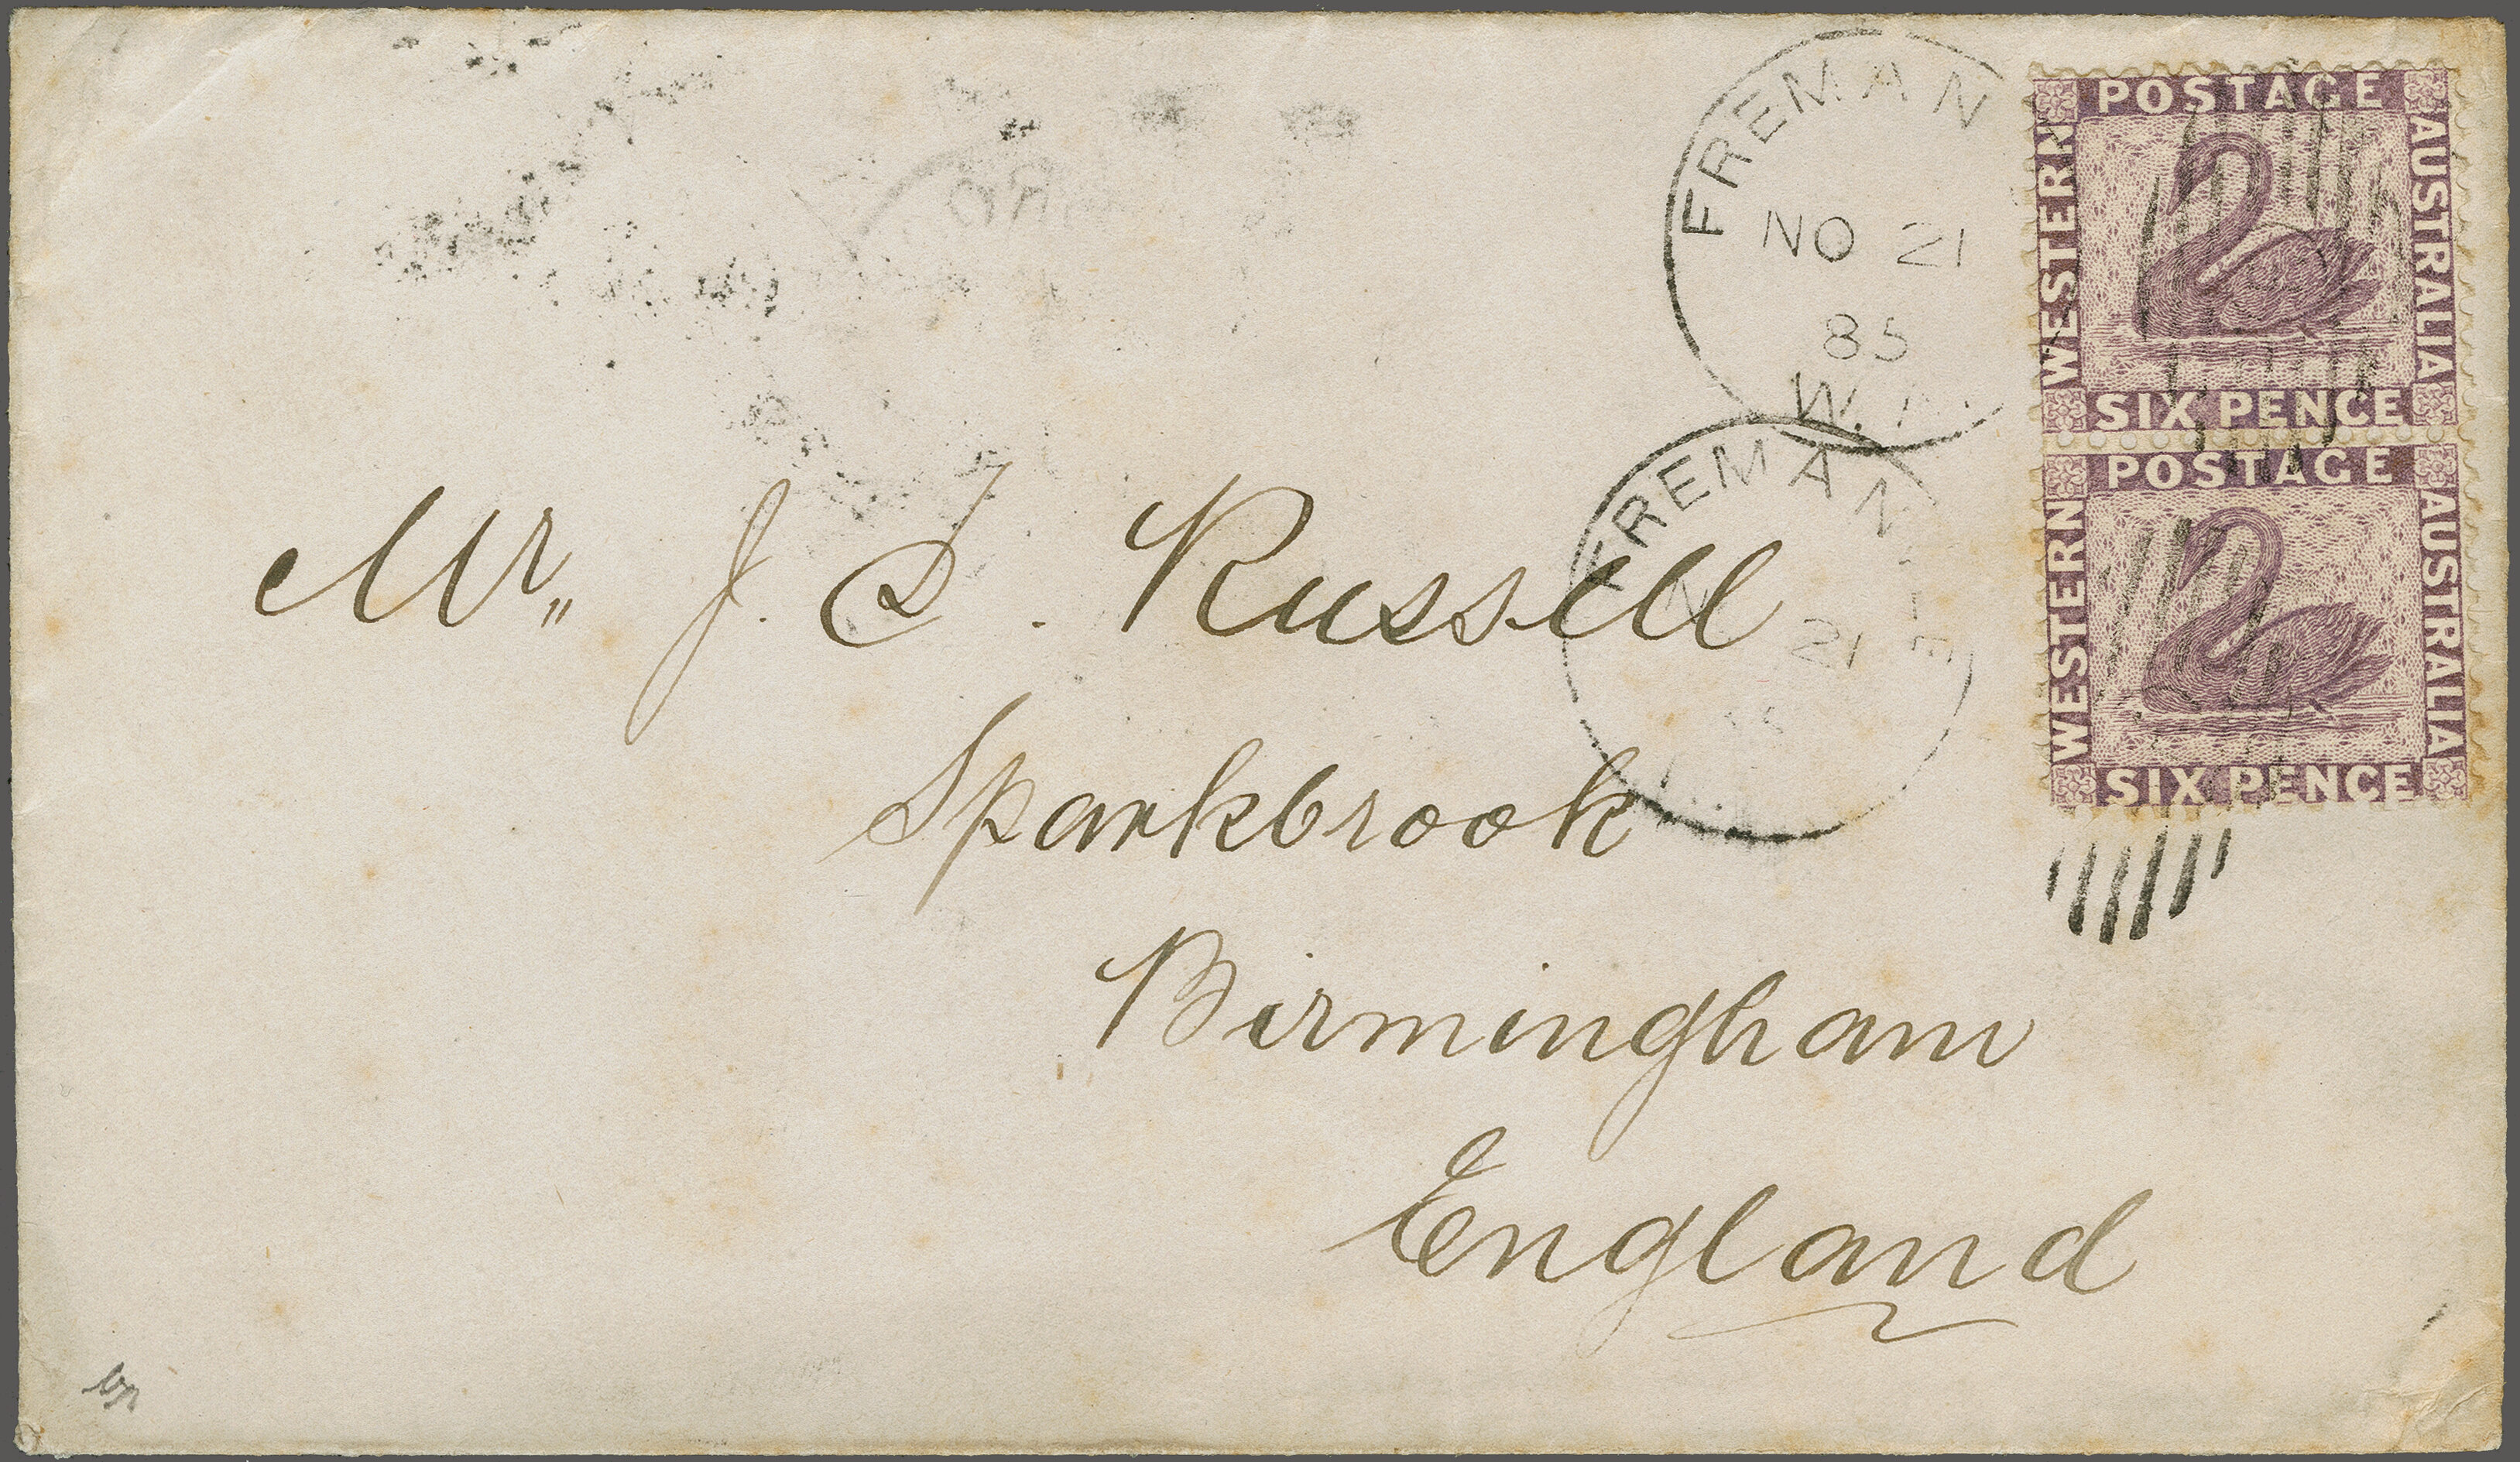 FREMAN
NO 21
85
W.
FREMAN
21
E
POSTAGE
WESTERN
AUSTRALIA
SIX PENCE
POSTAGE
WESTERN
AUSTRALIA
SIX PENCE
Mr„ J. Russell
Sparkbrook
Birmingham
England